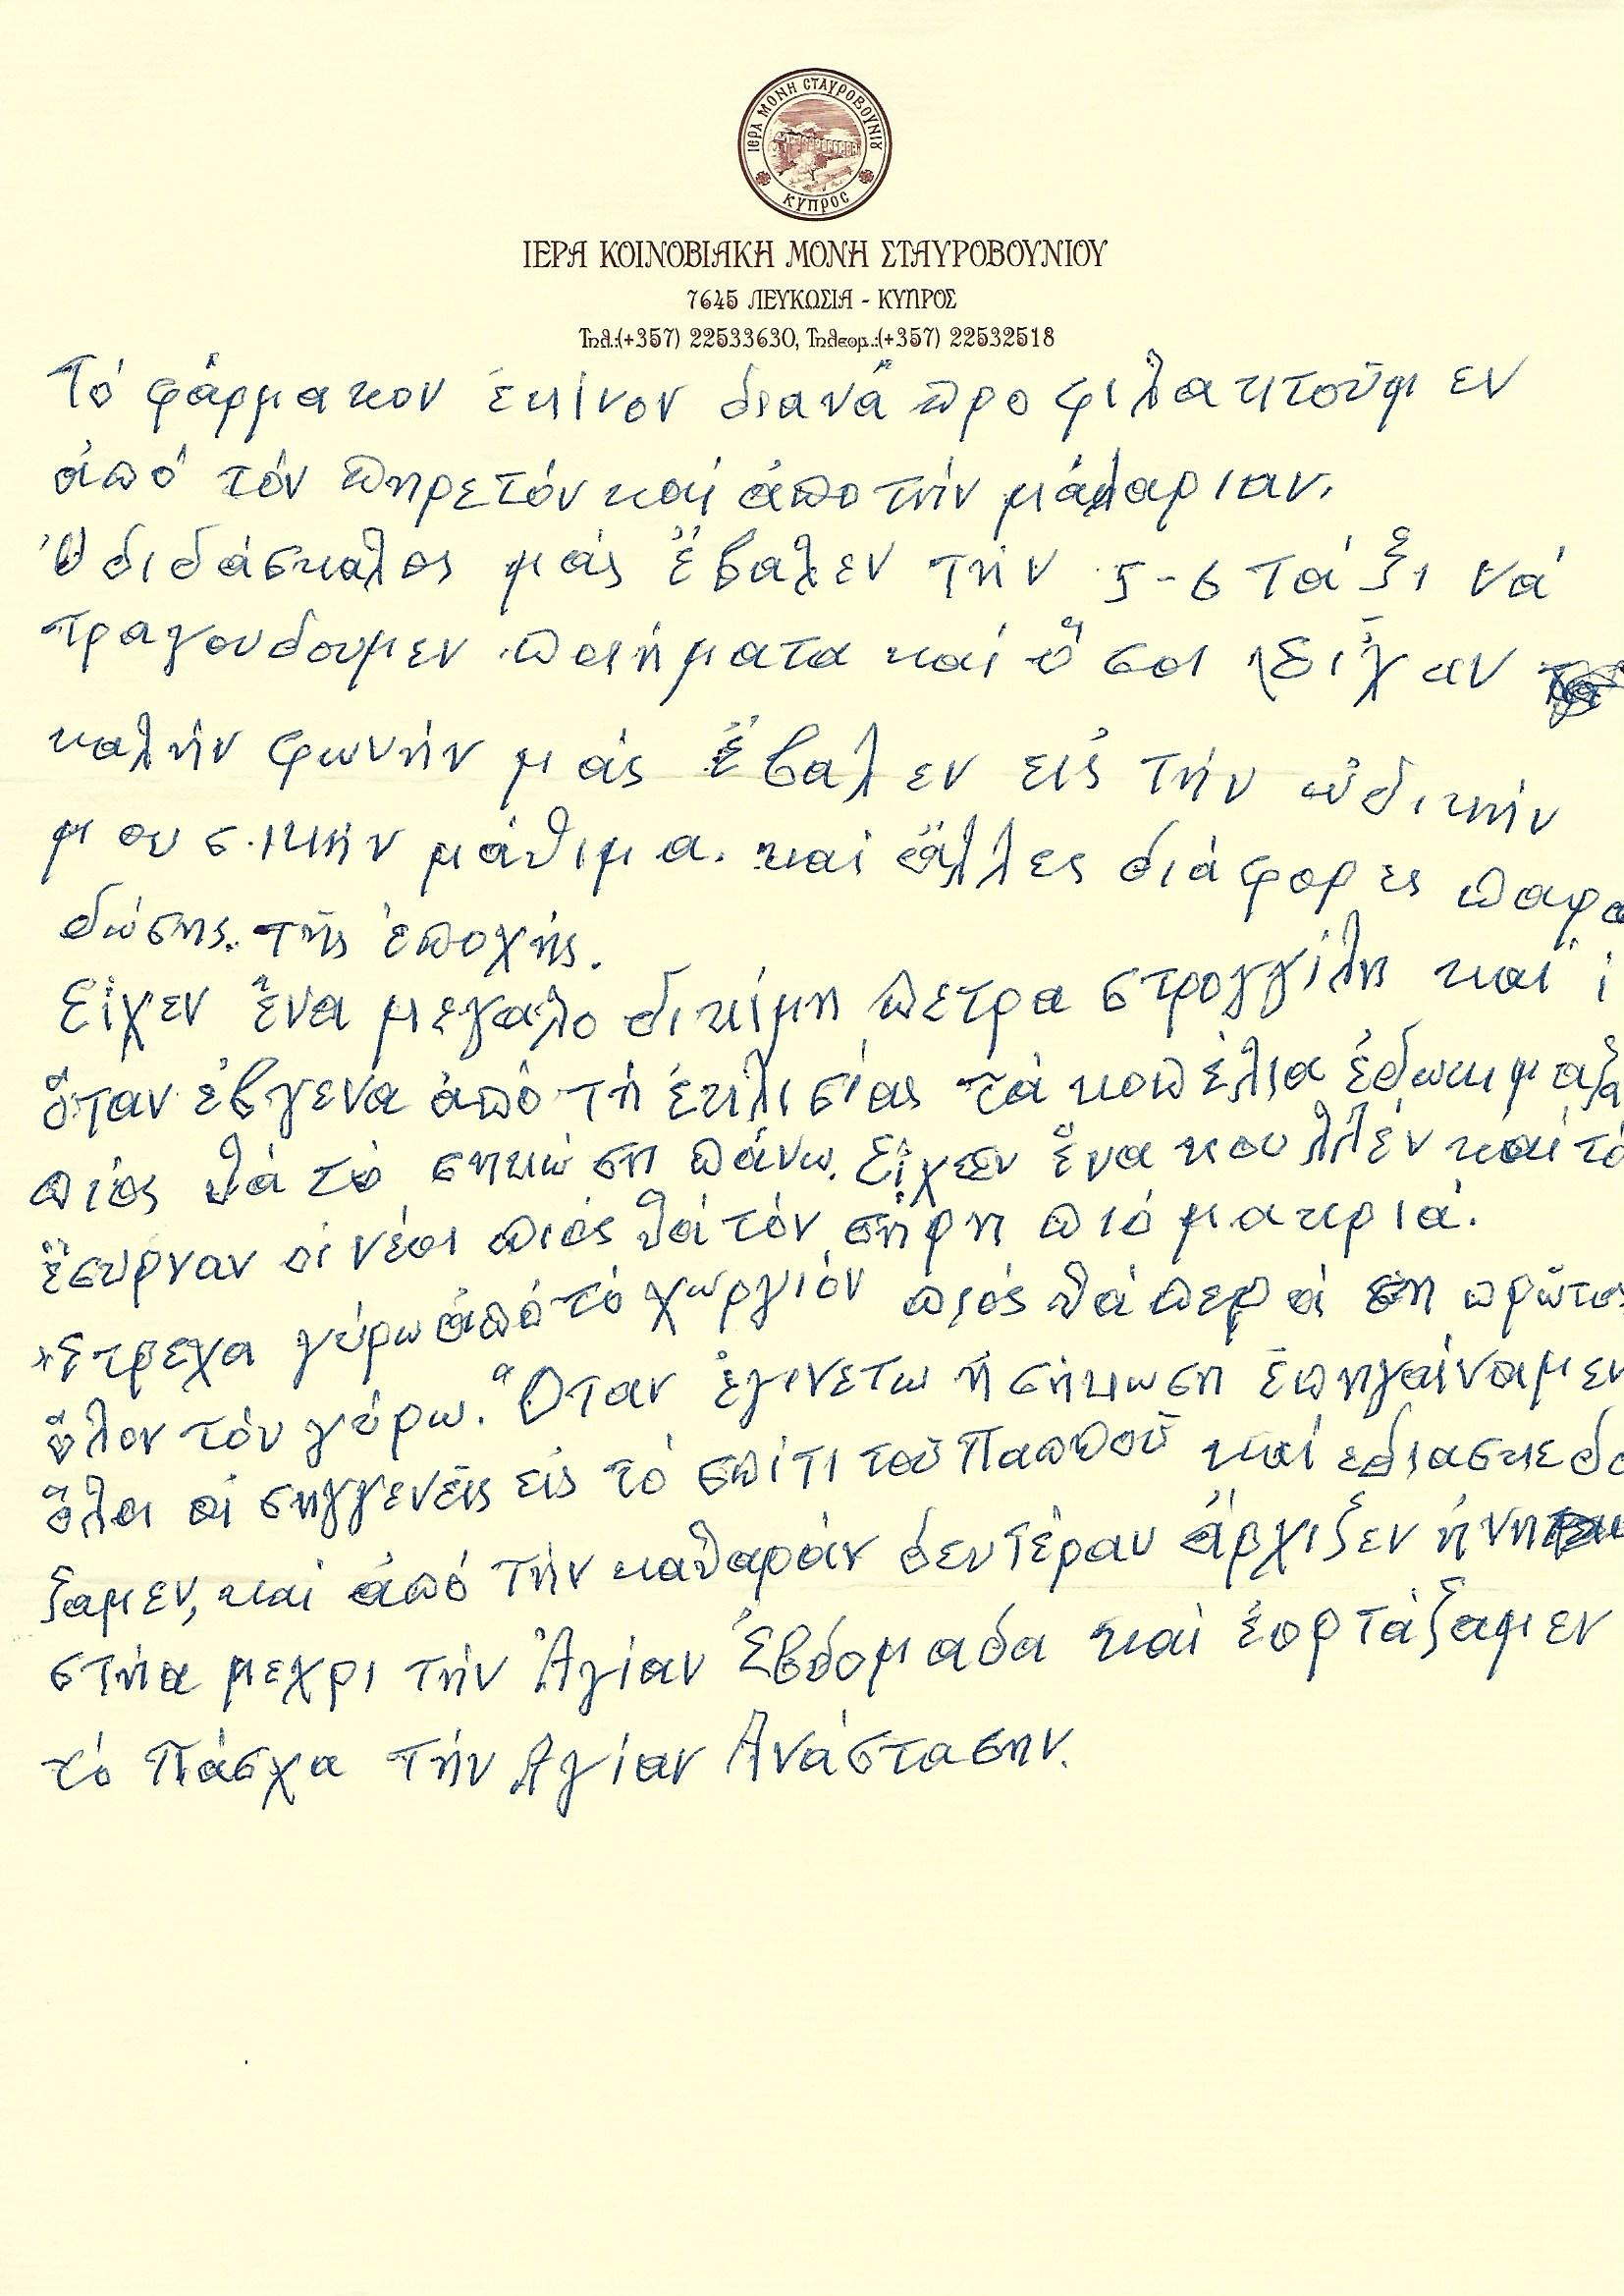 ΙΕΡΑ ΜΟΝΗ ΣΤΑΥΡΟΒΟΥΝΙΟΥ
ΚΥΠΡΟΣ
ΙΕΡΑ ΚΟΙΝΟΒΙΑΚΗ ΜΟΝΗ ΣΤΑΥΡΟΒΟΥΝΙΟΥ
7645 ΛΕΥΚΩΣΙΑ - ΚΥΠΡΟΣ
Τηλ.:(+357) 22533630, Τηλεομ.:(+357) 22532518
Τό φάρμακον ἐκίνον διανά προφιλακτοῦμεν
ἀπό τόν πηρετόν καί ἀπο τήν μάλαριαν.
Ὁ διδάσκαλος μάς ἔβαλεν τήν 5-6 τάξι νά
τραγουδουμεν ποιήματα καί ὅσοι εἶχαν
καλήν φωνήν μάς ἔβαλεν εἰς τήν ὠδικήν
μουσικήν μάθιμα. καί ἄλλες διάφορες παρα
δώσης. τῆς ἐποχής.
Εἶχεν ἕνα μεγαλο δικίμη πετρα στρογγίλη καί
ὅταν ἐβγενα ἀπό τή ἐκλισίας τά κοπέλια ἐδωκιμαζα
πιός θά τό σηκώση πάνω. Εἶχεν ἕνα κουλλέν καί τό
ἔσυρναν οἱ νέοι πιός θά τόν σήρη πιό μακριά.
Ἐτρεχα γύρω ἀπό τό χωργιόν πιός θά περάση πρῶτος
ὅλον τόν γύρω. Ὅταν ἐγινετω ἡ σήκωση ἐπηγαίναμεν
ὅλοι οἱ σηγγενεῖς εἰς τό σπίτι τοῦ Παππού καί εδιασκεδα
ζαμεν, καί ἀπό τήν καθαράν δευτέραν ἀρχιζεν ἡ νη
στήα μεχρι τήν Ἁγίαν Ἑβδομαδα καί ἑορτάζαμεν
τό Πάσχα τήν Ἁγίαν Ἀνάστασην.